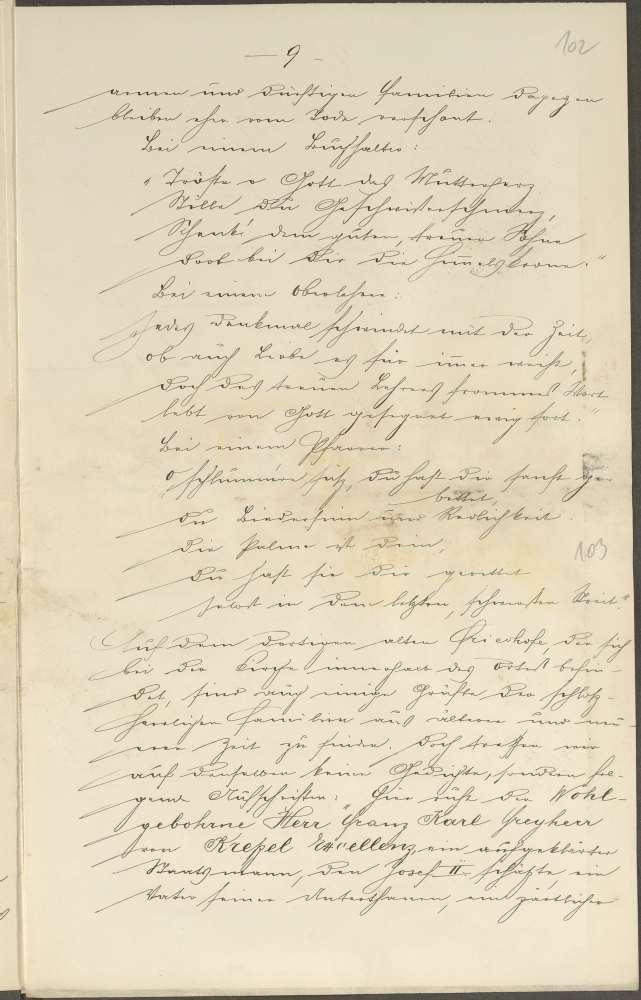 102
— 9 —
armen und dürftigen Familien dagegen
bleiben eher vom Tode verschont.
Bei einem Buchhalter:
"Tröste o Gott das Mutterherz
Stille den Geschwisterschmerz,
Schenk' dem guten, treuen Sohne
Dort bei Dir die Himmelskrone."
Bei einem Oberlehrer:
Jedes Denkmal schwindet mit der Zeit,
ob auch Liebe es für immer weiht,
Doch des treuen Lehrers frommes Wort
lebt von Gott gesegnet ewig fort."
Bei einem Pfarrer:
O schlummere süß, du hast dir sanft ge-
bettet,
Du Biedersinn und Redlichkeit.
Die Palme ist dein,
103
Du hast sie dir gerettet
selbst in dem letzten, schwersten Streit."
Auf dem dortigen alten Friedhofe, der sich
bei der Kirche innerhalb des Ortes befin-
det, sind auch einige Grüfte der schloß-
herrlichen Familien aus älterer und neu-
erer Zeit zu finden. Doch treffen wir
auf denselben keine Gedichte, sondern fol-
gende Aufschriften: Hier ruht der Wohl-
gebohrne Herr Franz Karl Freyherr
von Kreßel Excellenz, ein aufgeklärter
Staatsmann, den Josef II. schätzte, ein
Vater seiner Unterthanen, ein zärtlicher